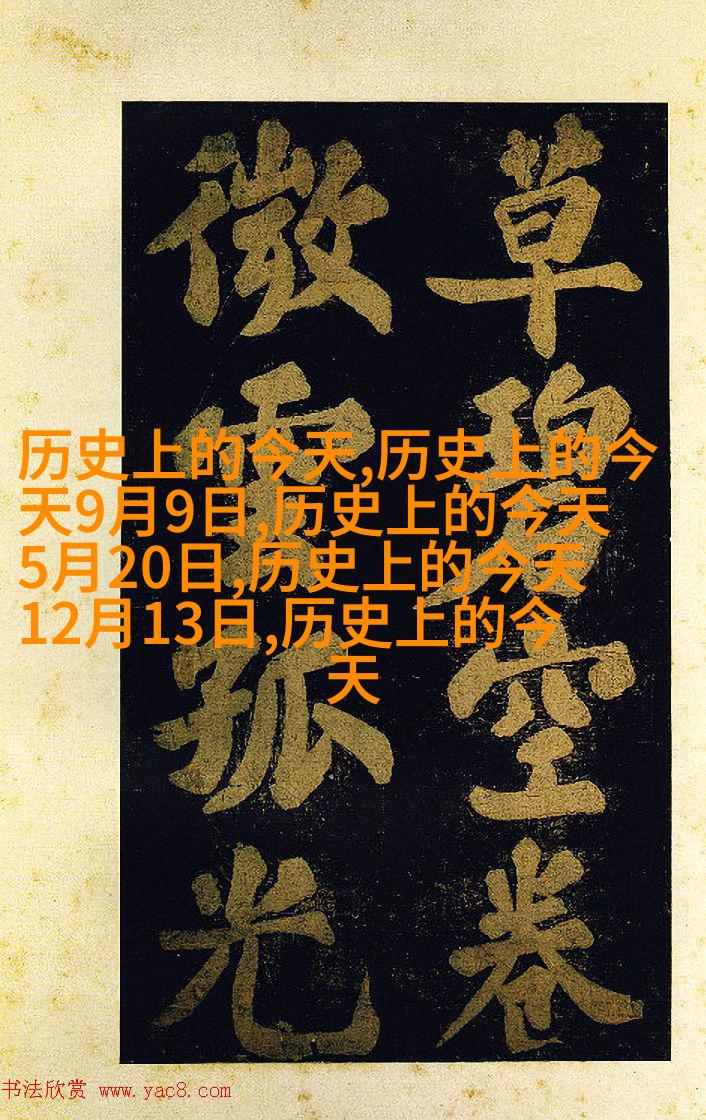 草碧空卷
微雲孤光
历史上的今天,历史上的今
天9月9日,历史上的今天
5月20日,历史上的今天
12月13日,历史上的今
天
书法欣赏 www.yac8.com